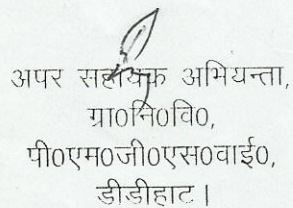 अपर सहायक अभियन्ता,
ग्रा०नि०वि०,
पी०एम०जी०एस०वाई०,
डीडीहाट।